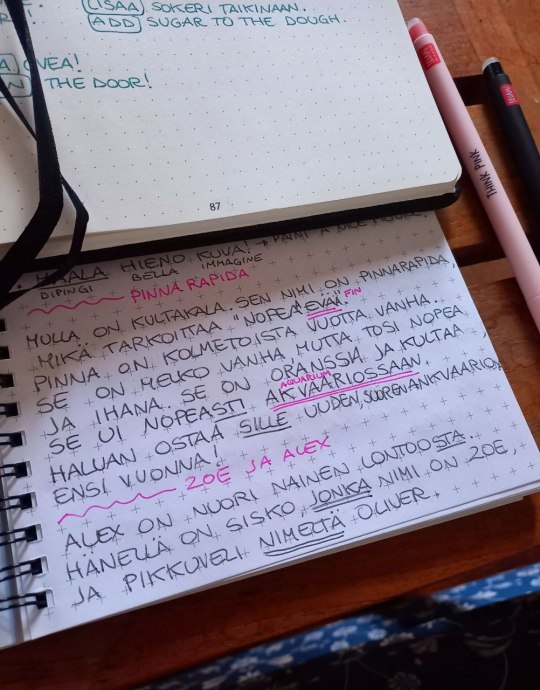 LISAA SOKERI TAIKINAAN.
ADD SUGAR TO THE DOUGH.
OVEA!
THE DOOR!
87
MAALA HIENO KUVA! → PAINT A NICE PICTURE
DIPINGI BELLA IMMAGINE
PINNA RAPIDA
MULLA ON KULTAKALA. SEN NIMI ON PINNARAPIDA,
MIKÄ TARKOITTAA "NOPEA EVÄ". FIN
PINNA ON KOLMETOISTA VUOTTA VANHA.
SE ON MELKO VANHA, MUTTA TOSI NOPEA
JA IHANA. SE ON ORANSSIA JA KULTAA,
AQUARIUM
SE UI NOPEASTI AKVAARIOSSAAN.
HALUAN OSTAA SILLE UUDEN, SUUREN AKVAARION
ENSI VUONNA!
ZOE JA ALEX
ALEX ON NUORI NAINEN LONTOOSTA.
HÄNELLÄ ON SISKO, JONKA NIMI ON ZOE,
JA PIKKUVELI NIMELTÄ OLIVER.
THINK PINK